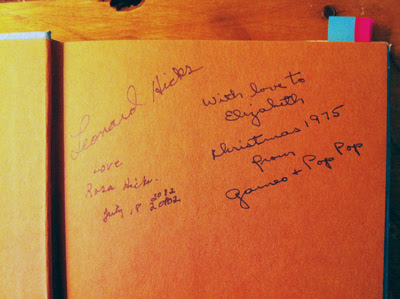 Leonard Hicks
Love
Rosa Hicks.
July, 8, 2002
2002
With love to
Elizabeth
Christmas 1975
from
Gameo + Pop Pop